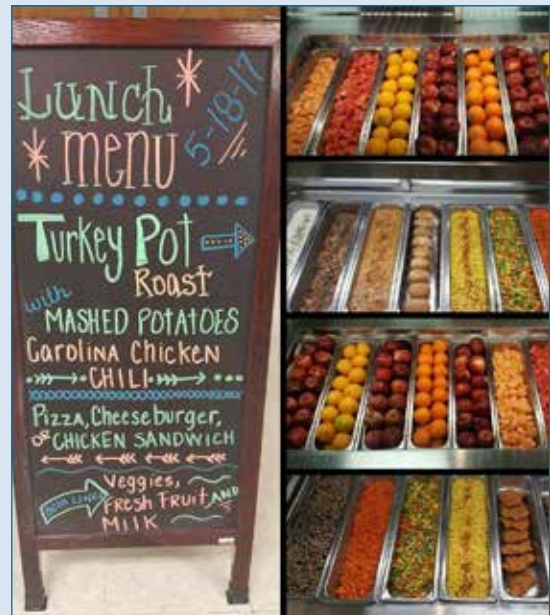 Lunch
5-18-17
menu
Turkey Pot
Roast
with
MASHED POTATOES
Carolina Chicken
CHILI
Pizza, Cheeseburger,
or CHICKEN SANDWICH
Veggies,
FRESH FRUIT AND
MILK